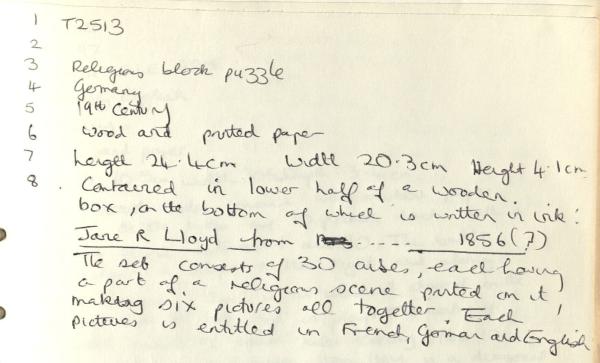 1 T2513
2
3 Religious block puzzle
4 Germany
5 19th Century
6 Wood and printed paper
7 Length 24.4cm Width 20.3cm Height 4.1cm
8. Contained in lower half of a wooden.
box, on the bottom of which is written in ink:
Jane R Lloyd from ..... 1856(?)
The set consists of 30 cubes, each having
a part of a religious scene printed on it,
making six pictures all together. Each
pictures is entitled in French, German and English